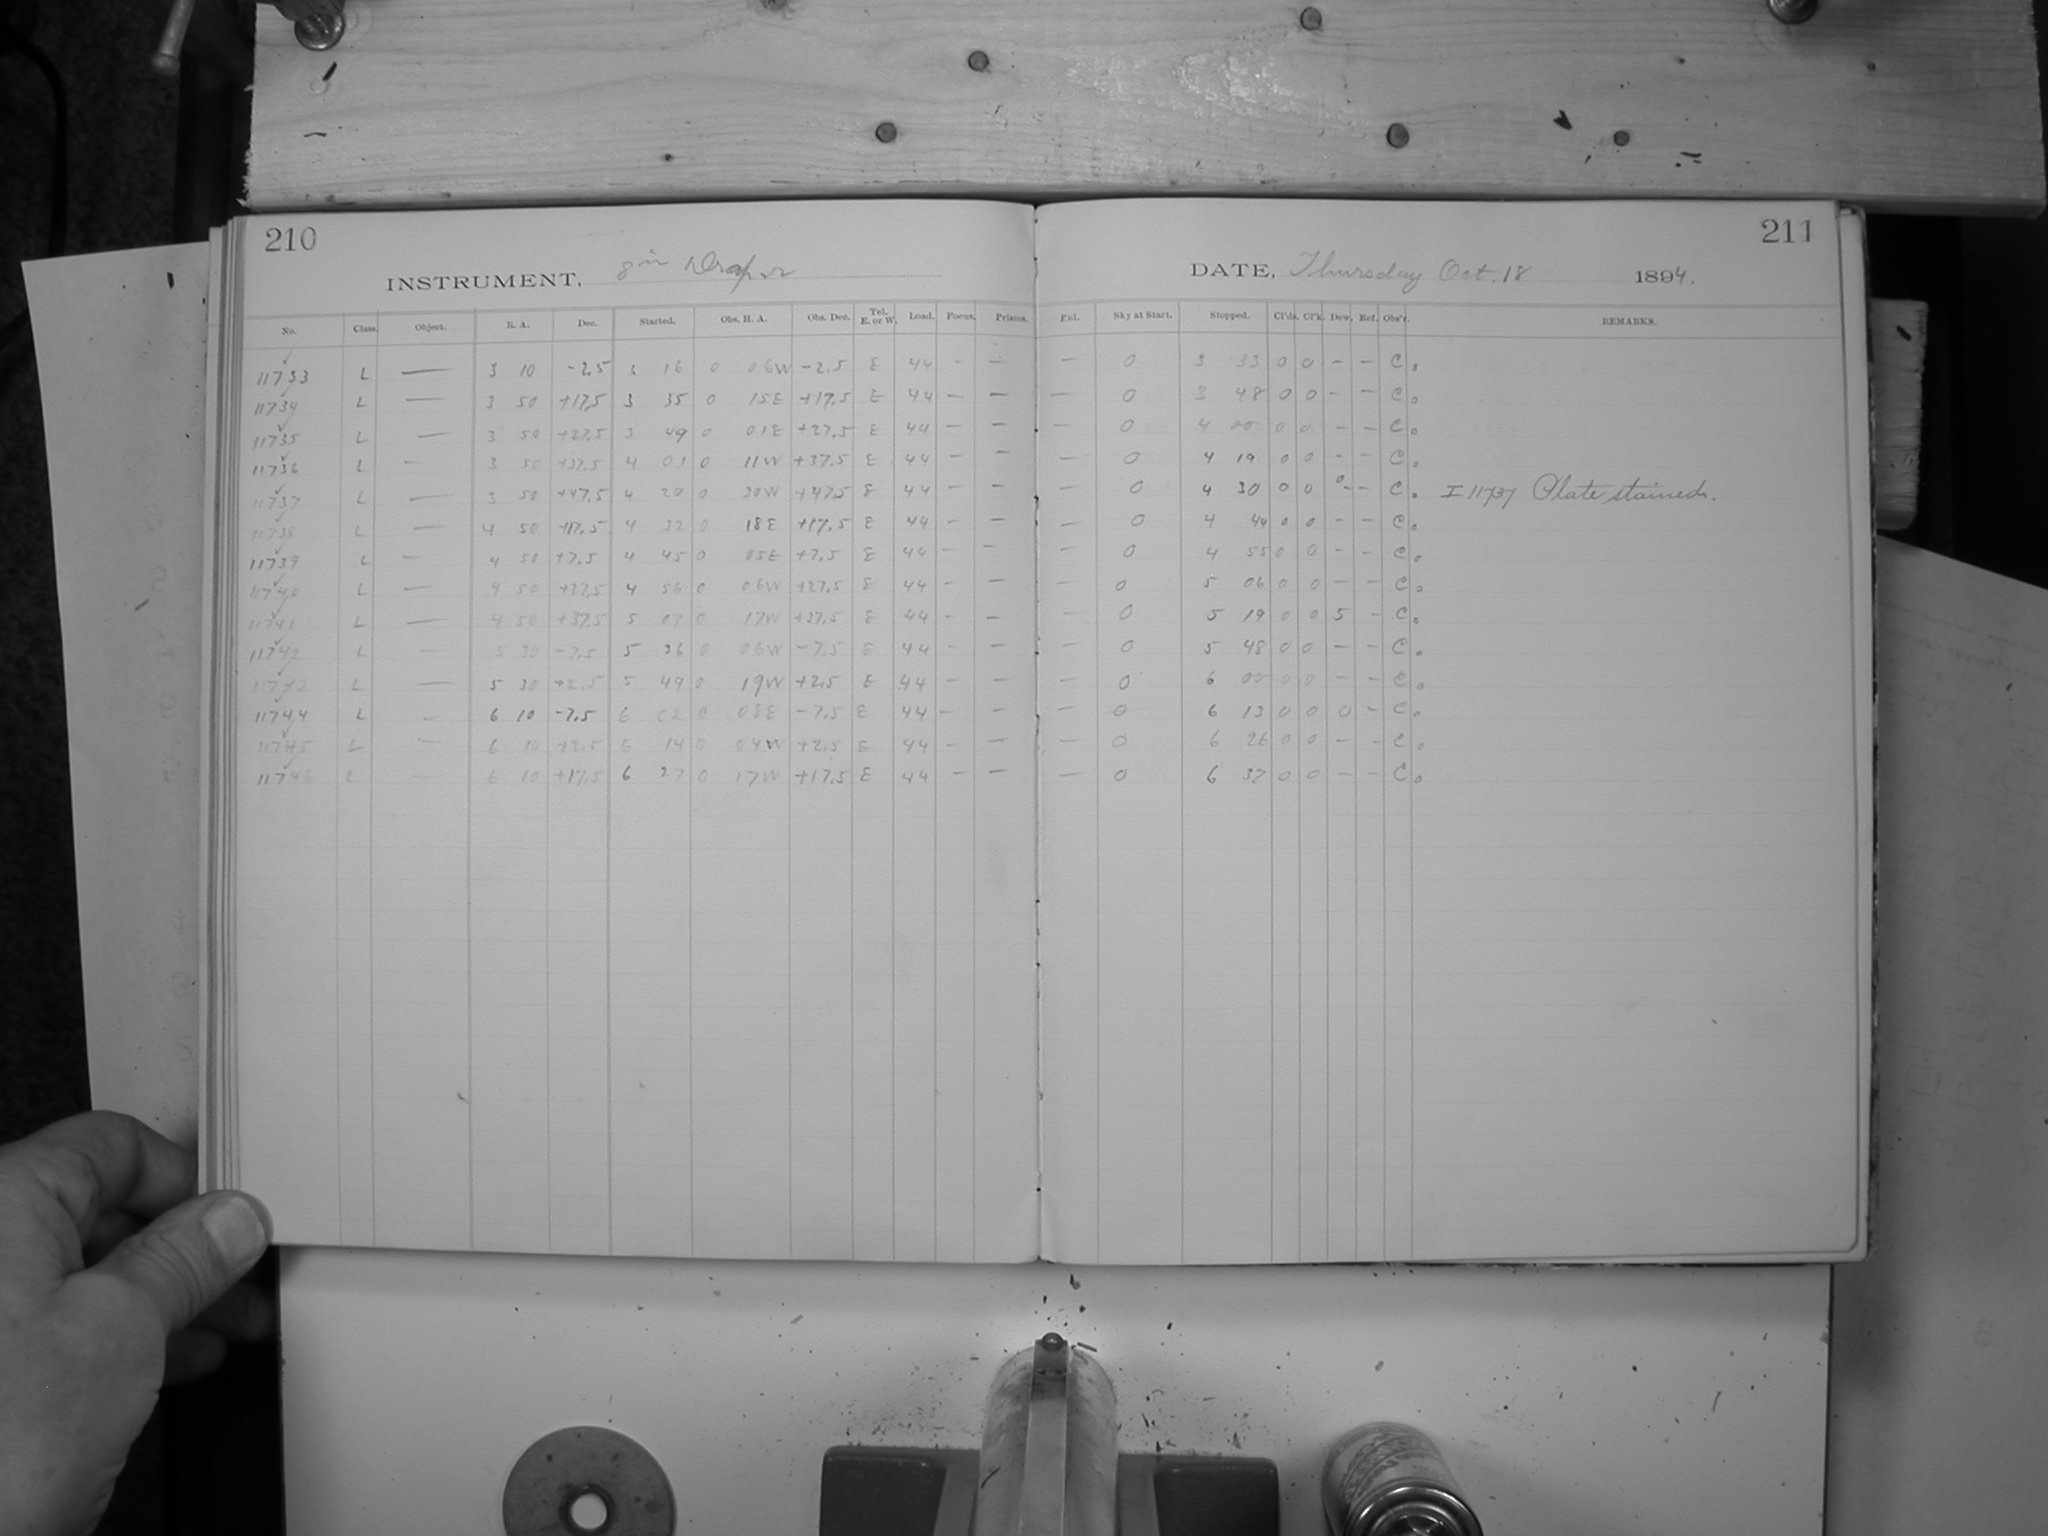 210
211
INSTRUMENT, 8 in Draper
DATE, Thursday Oct. 18 1894.
No. Class. Object. R. A. Dec. Started. Obs. H. A. Obs. Dec. Tel. E. or W. Load. Focus. Prisms. Exl. Sky at Start. Stopped. Cl'ds. Cl'k. Dew. Ref. Obs'r. REMARKS.
11733 L — 3 10 -2.5 3 16 0 06W -2.5 E 44 - - - 0 3 33 0 0 - - C.
11734 L — 3 50 +17.5 3 35 0 15E +17.5 E 44 - - - 0 3 48 0 0 - - C.
11735 L — 3 50 +27.5 3 49 0 01E +27.5 E 44 - - - 0 4 00 0 0 - - C.
11736 L — 3 50 +37.5 4 01 0 11W +37.5 E 44 - - - 0 4 19 0 0 - - C.
11737 L — 3 50 +47.5 4 20 0 30W +47.5 E 44 - - - 0 4 30 0 0 0 - - C. I 11737 Plate stained.
11738 L — 4 50 +17.5 4 32 0 18E +17.5 E 44 - - - 0 4 44 0 0 - - C.
11739 L — 4 50 +7.5 4 45 0 05E +7.5 E 44 - - - 0 4 55 0 0 - - C.
11740 L — 4 50 +27.5 4 56 0 06W +27.5 E 44 - - - 0 5 06 0 0 - - C.
11741 L — 4 50 +37.5 5 07 0 17W +37.5 E 44 - - - 0 5 19 0 0 5 - C.
11742 L — 5 30 -7.5 5 36 0 06W -7.5 E 44 - - - 0 5 48 0 0 - - C.
11743 L — 5 30 +2.5 5 49 0 19W +2.5 E 44 - - - 0 6 00 0 0 - - C.
11744 L — 6 10 -7.5 6 02 0 08E -7.5 E 44 - - - 0 6 13 0 0 0 - C.
11745 L — 6 10 +2.5 6 14 0 04W +2.5 E 44 - - - 0 6 26 0 0 - - C.
11746 L — 6 10 +17.5 6 27 0 17W +17.5 E 44 - - - 0 6 37 0 0 - - C.